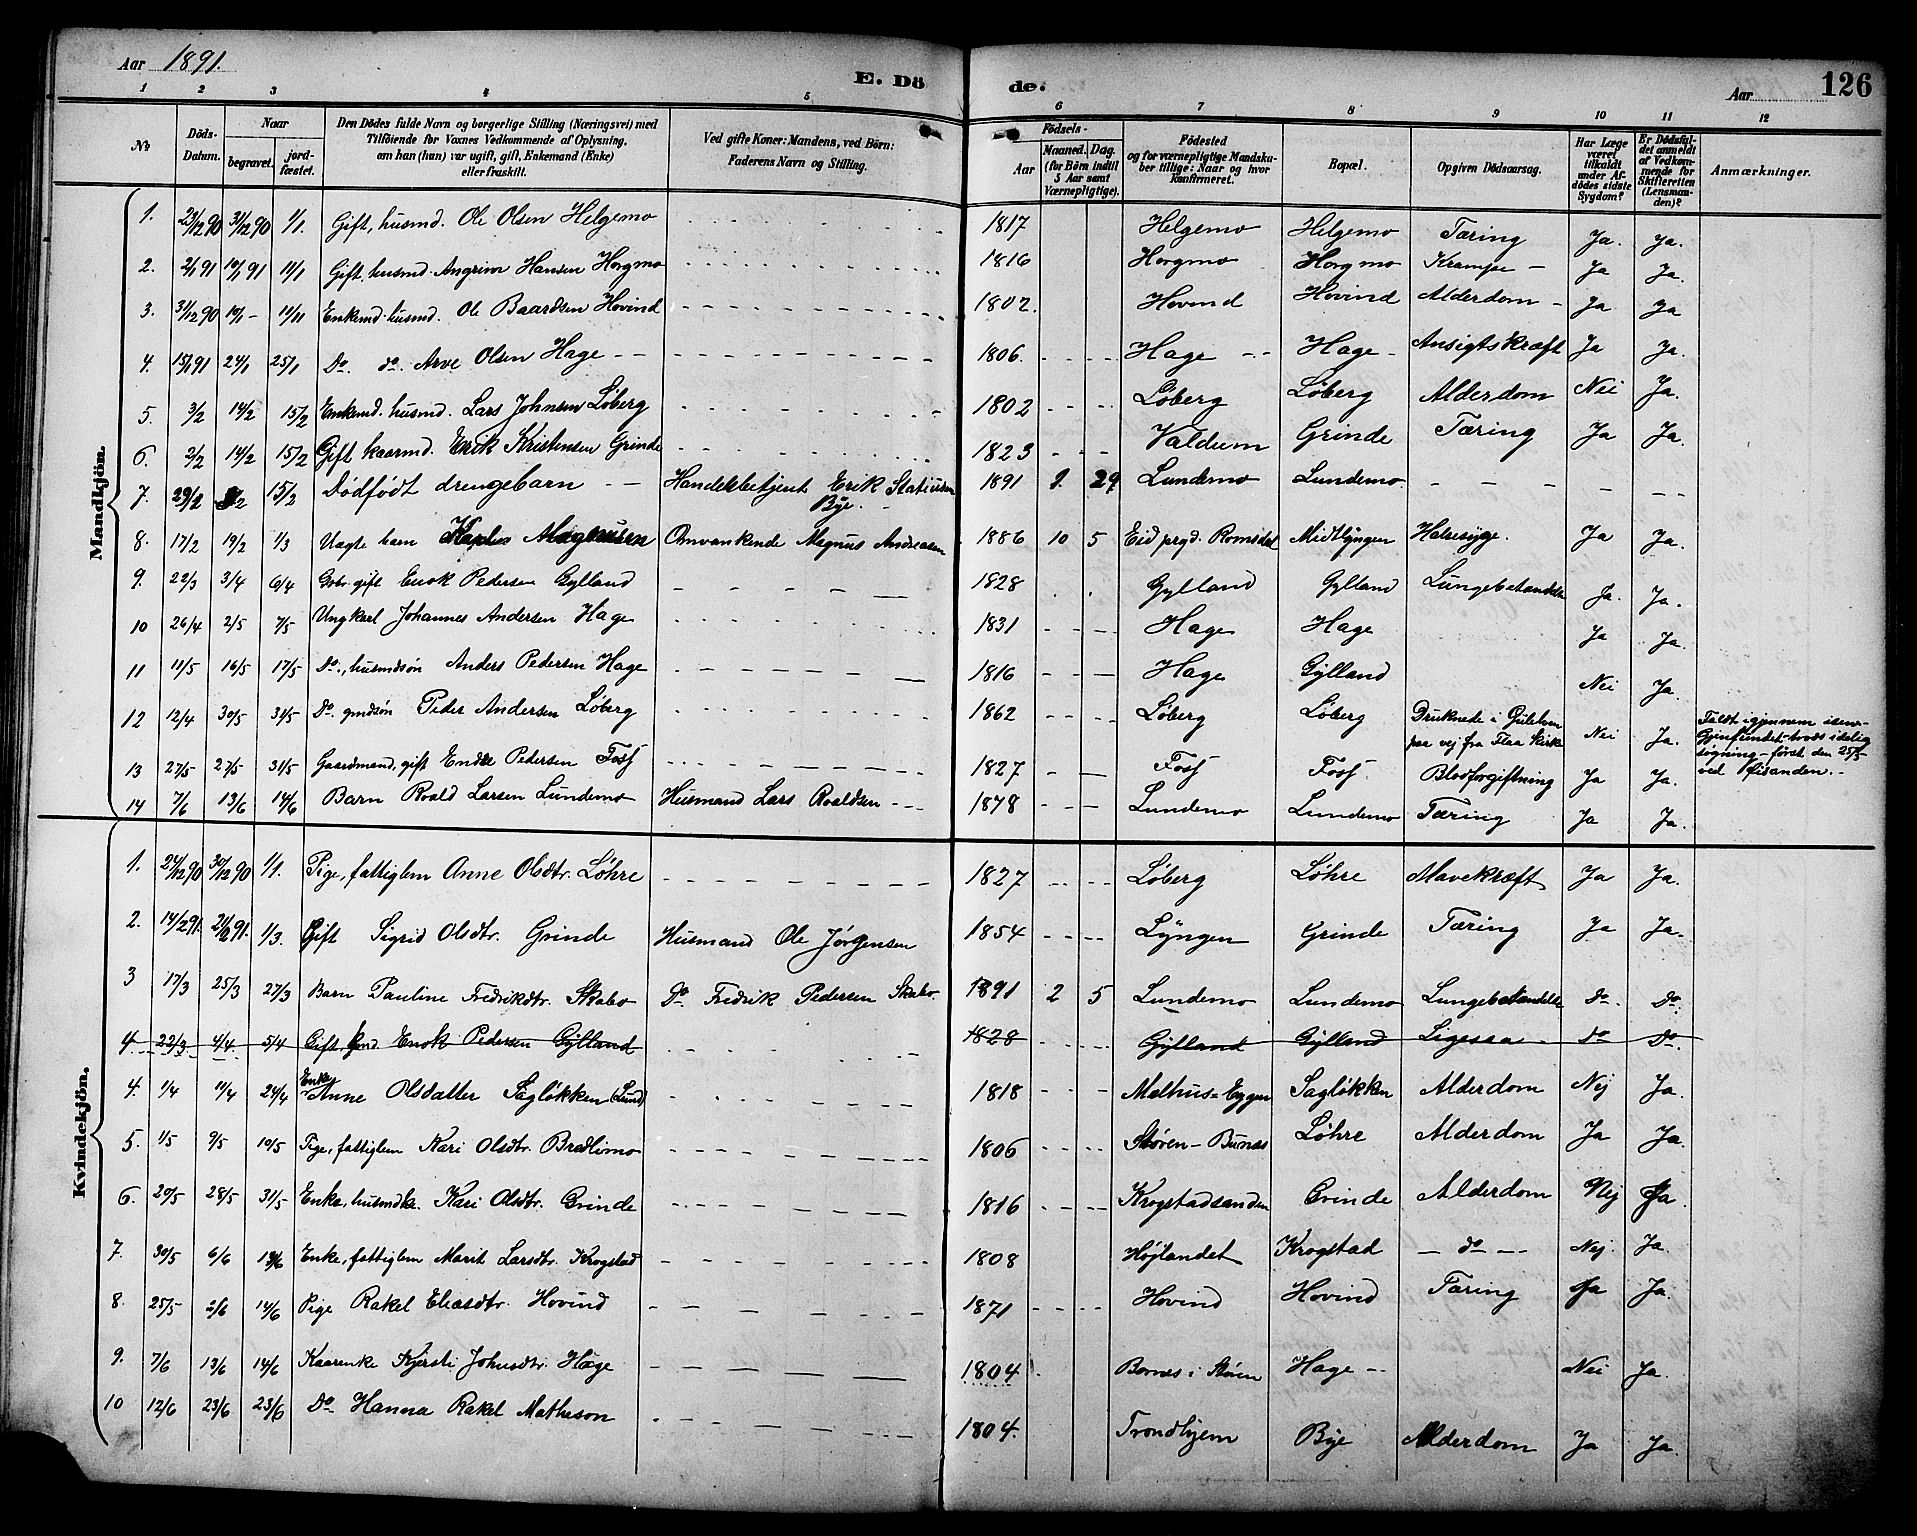 Aar 1891.
E. Döde.
Aar
126
1 2 3 4 5 6 7 8 9 10 11 12
No
Döds-Datum.
Naar
begravet.
jord-fæstet.
Den Dödes fulde Navn og borgerlige Stilling (Næringsvei) med
Tilföiende for Voxnes Vedkommende af Oplysning,
om han (hun) var ugift, gift, Enkemand (Enke)
eller fraskilt.
Ved gifte Koner: Mandens, ved Börn:
Faderens Navn og Stilling.
Födsels-
Aar
Maaned. Dag.
(for Börn indtil
5 Aar samt
Værnepligtige).
Födested
og for værnepligtige Mandska-
ber tillige: Naar og hvor
konfirmeret.
Bopæl.
Opgiven Dödsaarsag.
Har Læge
været
tilkaldt
under Af-
dödes sidste
Sygdom?
Er Dödsfal-
det anmeldt
af Vedkom-
mende for
Skifteretten
(Lensman-
den)?
Anmærkninger.
Mandkjön.
1. 23/12 90 31/12 90 1/1. Gift, husmd. Ole Olsen Helgemo 1817 Helgemo Helgemo Tæring Ja. Ja.
2. 2/1 91 10/1 91 11/1 Gift husmd. Angrim Hansen Horgmo 1816 Horgmo Horgmo Krampe – Ja Ja.
3. 31/12 90 10/1 – 11/11 Enkemd. husmd. Ole Baardsen Hovind 1802. Hovind Hovind Alderdom – Ja Ja
4. 15/1 91 24/1 25/1 Do. do. Arve Olsen Hage – – 1806. Hage – – Hage – Ansigtskræft Ja Ja.
5. 3/2 14/2 15/2 Enkemd. husmd. Lars Johnsen Löberg 1802 Löberg Löberg Alderdom Nei Ja.
6. 2/2 14/2 15/2 Gift kaarmd. Erik Kristensen Grinde 1823 Valdum Grinde Tæring Ja Ja.
7. 29/2 15/2 Dödfödt drengebarn – – Handelsbetjent Erik Statiusen
Bye. 1891 29 Lundemo Lundemo
8. 17/2 19/2 1/3 Uægte barn Magnusen Omvankende Magnus Andreasen 1886 10 5 Eid prgd. Romsdal Midtlyngen Halssyge. Ja Ja.
9. 22/3 3/4 6/4 Gbr. gift Enok Pedersen Gylland 1828 Gylland Gylland Lungebetændelse Ja. Ja.
10 26/4 2/5 7/5 Ungkarl Johannes Andersen Hage 1831 Hage Hage Ja Ja.
11 11/5 16/5 17/5 Do., husmdsön Anders Pedersen Hage 1816 Hage Gylland Nei Ja.
12 12/4 30/5 31/5 Do. gmdsön Peder Andersen Löberg 1862 Löberg Löberg Druknede i Gulelven
paa vej fra Flaa Kirke Nei Ja. Faldt igjennem isen.
Gjenfundet – trods idelig
sögning – först den 25/5
ved Öisanden. –
13 27/5 27/5 31/5 Gaardmand, gift Endre Pedersen Foss 1827 Foss Foss. Blodforgiftning Ja Ja.
14 7/6 13/6 14/6 Barn Roald Larsen Lundemo Husmand Lars Roaldsen – – – 1878 Lundemo Lundemo Tæring Ja Ja.
Kvindekjön.
1. 24/12 90 30/12 90 1/1. Pige, fattiglem Anne Olsdtr. Löhre 1827 Löberg Löhre Mavekræft Ja Ja.
2. 14/2 91. 21/2 91. 1/3. Gift Sigrid Olsdtr. Grinde Husmand Ole Jörgensen 1854 Lyngen Grinde Tæring Ja Ja.
3 17/3 25/3 27/3 Barn Pauline Fredrikdtr. Skabo Do Fredrik Pedersen Skabo 1891 2 5 Lundemo Lundemo Lungebetændelse Do. Do.
4 22/3 4/4. 5/4 Gift gmd. Enok Pedersen Gylland 1828 Gylland Gylland Ligesaa – do Do.
4. 1/4 11/4 24/4 Enke Anne Olsdatter Saglökken (Lund) 1818 Melhus = Eggen Saglökken Alderdom Nej Ja.
5. 1/5 9/5 10/5 Pige, fattiglem Kari Olsdtr. Bradlimo 1806 Stören – Bunæs Löhre Alderdom Ja Ja.
6. 20/5 28/5 31/5 Enke, husmdke. Kari Olsdtr. Grinde 1816 Krogstadsanden Grinde Alderdom Nej Ja.
7. 30/5 6/6 13/6 Enke, fattiglem Marit Larsdtr. Krogstad 1808 Höjlandet Krogstad – do – – Nej. Ja.
8. 25/5 2/6 14/6 Pige Rakel Eliasdtr. Hovind 1871 Hovind Hovind Tæring Ja Ja.
9. 7/6 13/6 14/6 Kaarenke Kjersti Johnsdtr. Hage 1804 Bones i Stören Hage – – Nei Ja.
10 12/6 23/6 23/6 Do. Hanna Rakel Matheson 1804. Trondhjem Bye Alderdom Ja Ja.